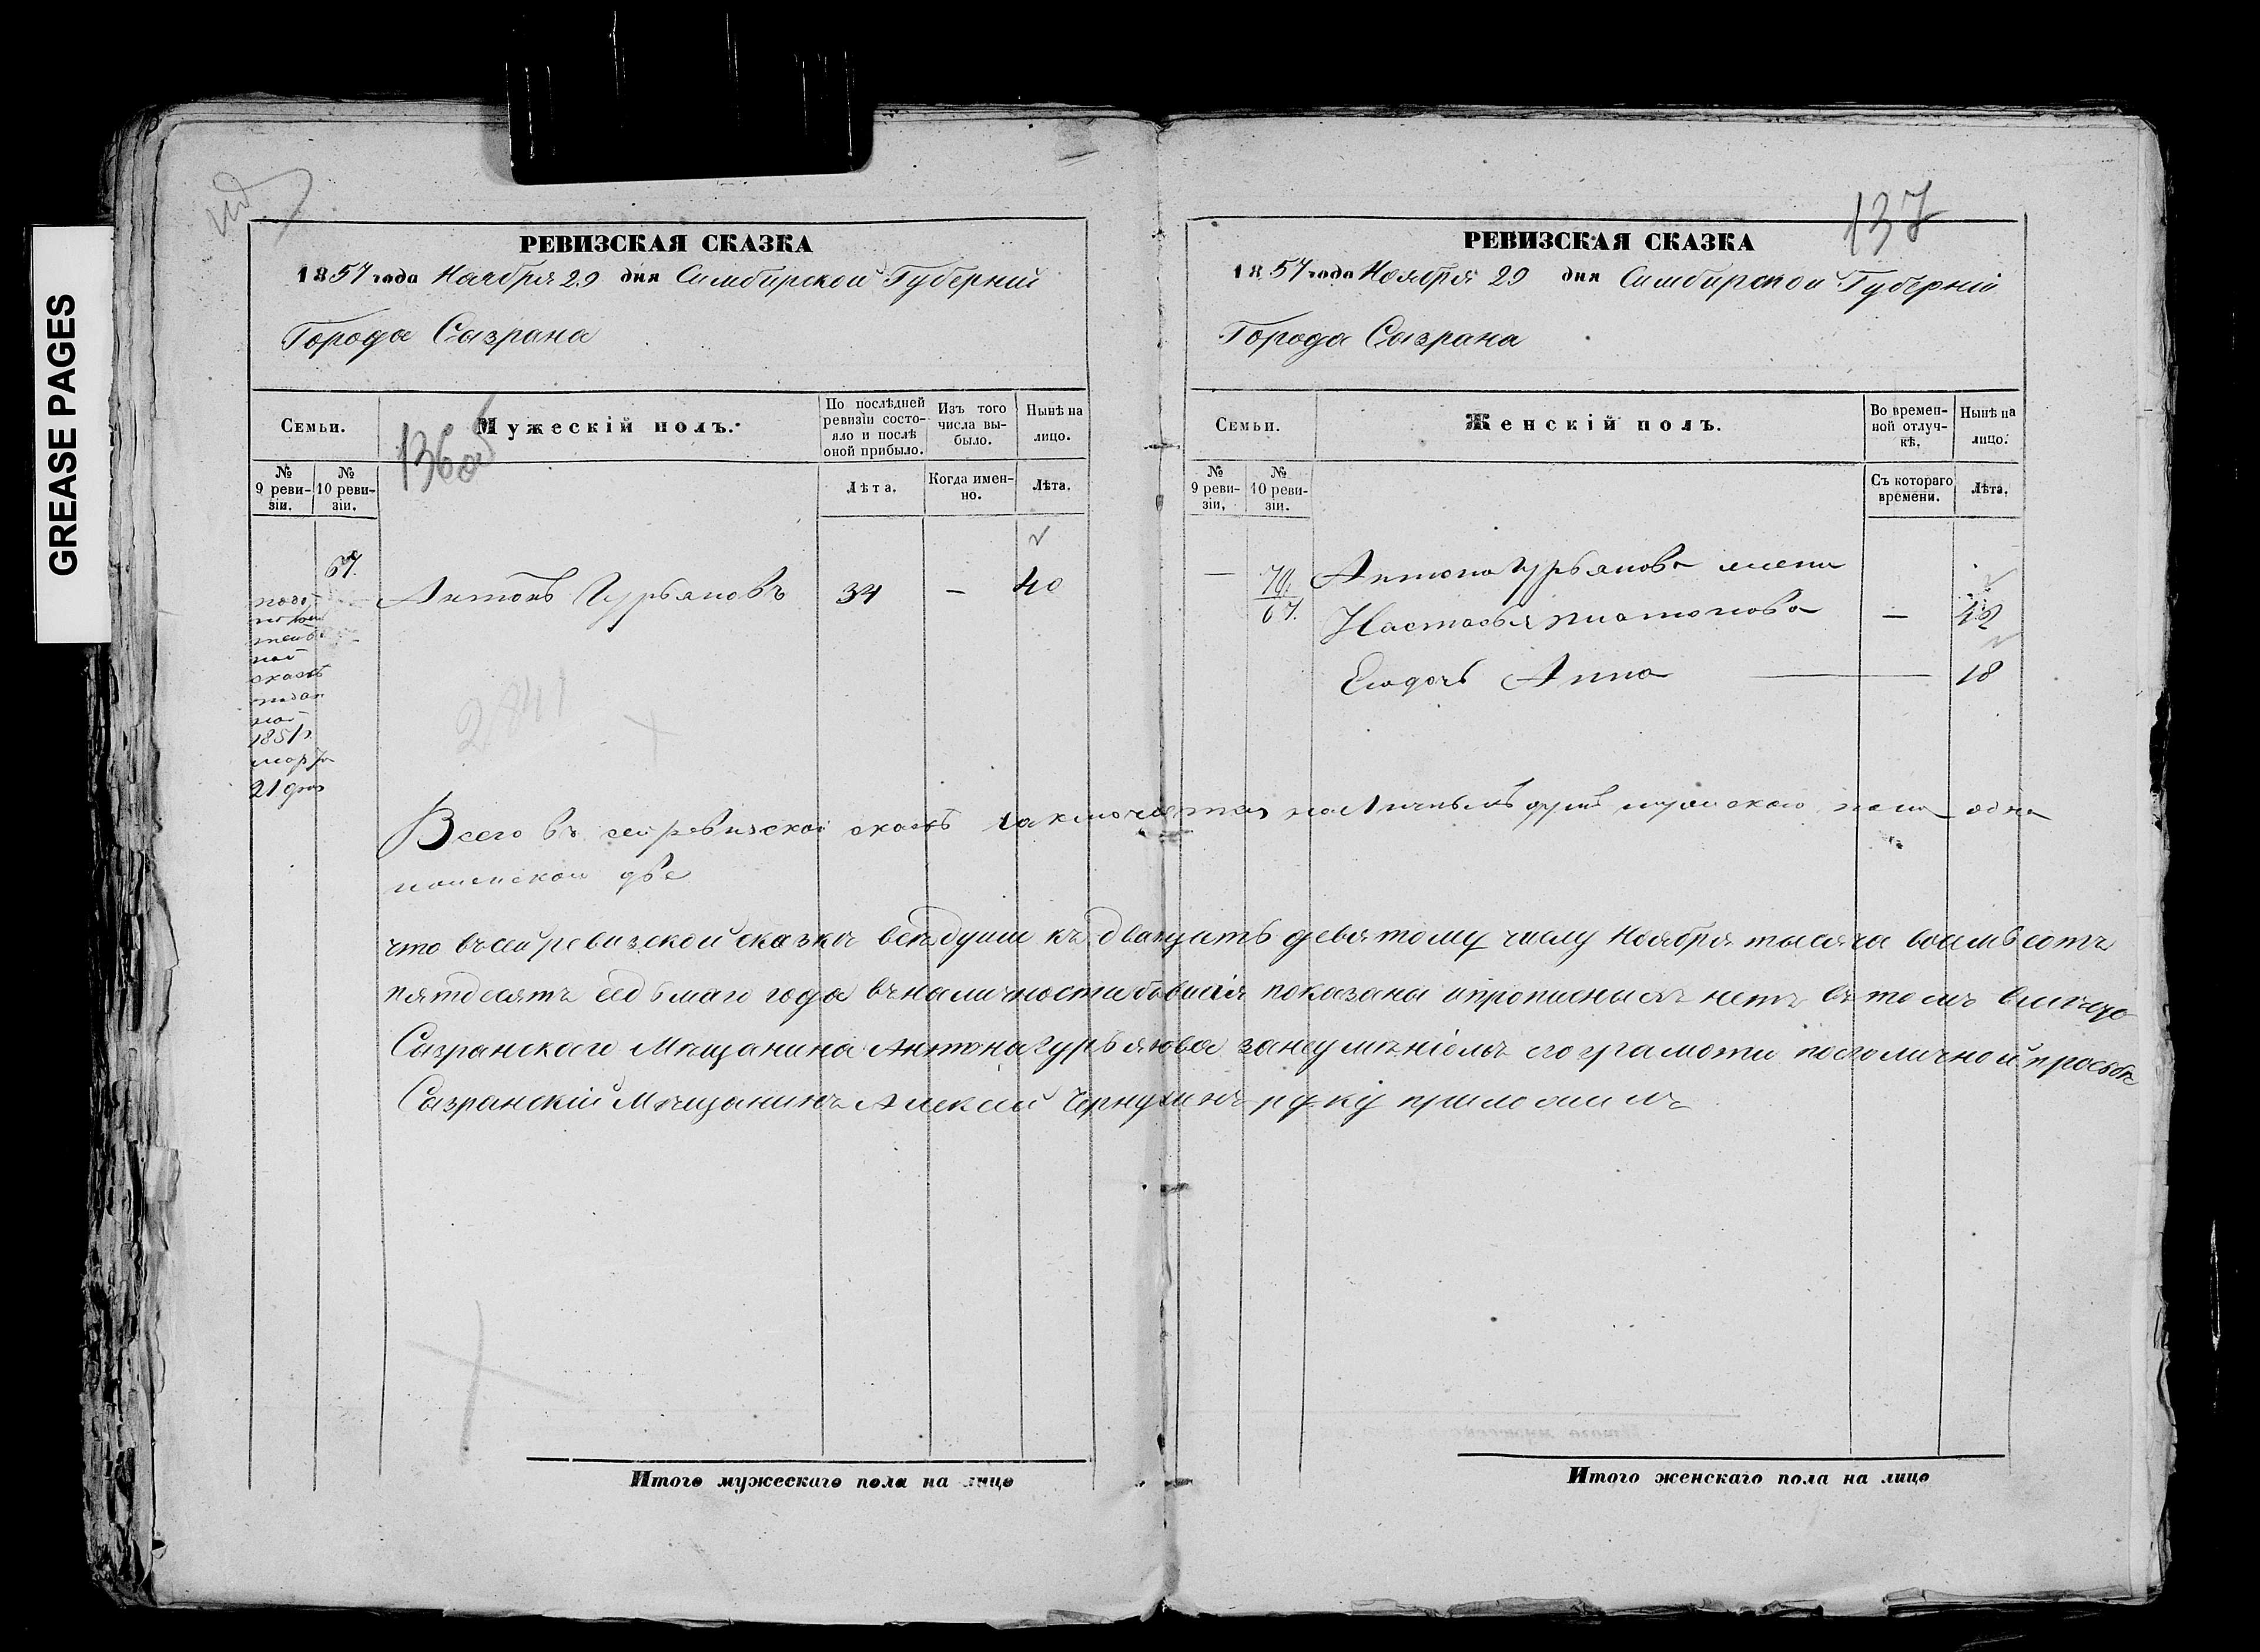 GREASE PAGES
РЕВИЗСКАЯ СКАЗКА
1857 года Ноября 29 дня Симбирской Губерніи
Города Сызрана
Семьи.
Мужескій полъ.
136об
По послѣдней ревизіи состо-
яло и послѣ
оной прибыло.
Изъ того
числа вы-
было.
Нынѣ на
лицо.
№
9 реви-
зіи.
№
10 реви-
зіи.
Лѣта.
Когда имен-
но.
Лѣта.
67.
Антонъ Гурьяновъ 34 — 40
по
ной
сказкѣ
подан
ной
1851 г.
марта
21 дня
2841
Всего въ сей ревизской сказкѣ заключается наличныхъ душъ мужескаго пола одна
женскаго две
что въ сей ревизской сказке вседуши къ двацать девятому числу Ноября тысяча восмьсотъ
пятдесятъ седьмаго года въналичностибывшия показаны ипрописныхъ нетъ въ томъ вместо
Сызранскаго Мещанина Антона Гурьянова занеуменіемъ его грамоти поеголичной прозбе
Сызранскій Мещанинъ Алексей Чернухинъ руку приложилъ
Итого мужескаго пола на лицо
137
РЕВИЗСКАЯ СКАЗКА
1857 года Ноября 29 дня Симбирской Губерніи
Города Сызрана
Семьи.
Женскій полъ.
Во времен-
ной отлуч-
кѣ.
Нынѣ на
лицо.
№
9 реви-
зіи.
№
10 реви-
зіи.
Съ котораго
времени.
Лѣта.
— 67. Антона Гурьянова жена
Настасья Платонова — 42
Еѣ дочь Анна — 18
Итого женскаго пола на лицо